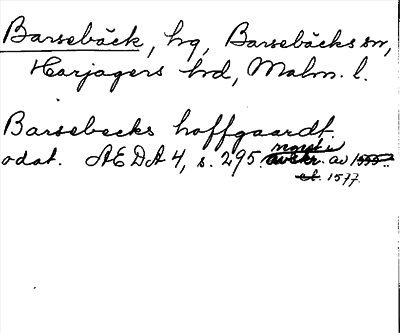 Barsebäck, hg, Barsebäcks sn,
Harjagers hd, Malm. l.
Barsebecks hoffgaardt
odat. AEDA 4, s. 295. avskr. av 1555.
1577